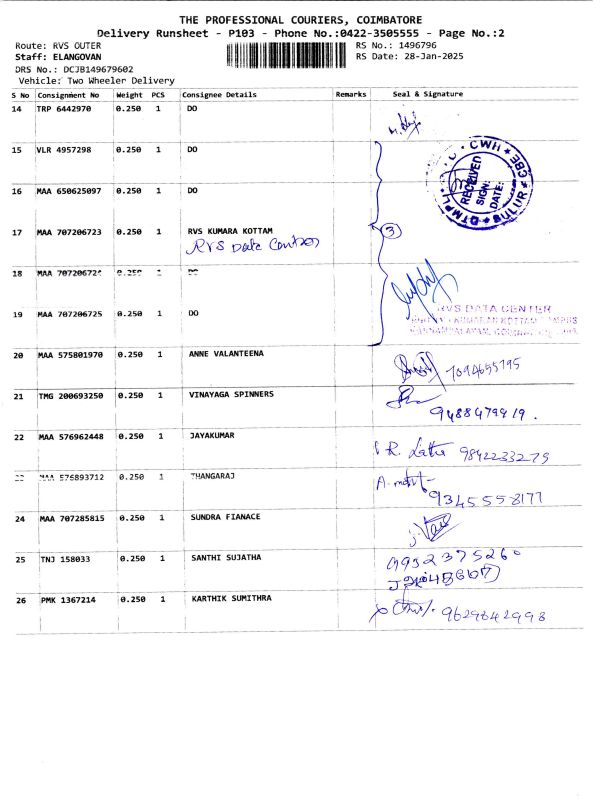 THE PROFESSIONAL COURIERS, COIMBATORE
Delivery Runsheet - P103 - Phone No.:0422-3505555 - Page No.:2
Route: RVS OUTER
RS No.: 1496796
Staff: ELANGOVAN
RS Date: 28-Jan-2025
DRS No.: DCJB149679602
Vehicle: Two Wheeler Delivery
S No Consignment No Weight PCS Consignee Details Remarks Seal & Signature
14 TRP 6442970 0.250 1 DO
15 VLR 4957298 0.250 1 DO
CWH ★ CBE ★
RECEIVED
SIGN:
DATE:
16 MAA 650625097 0.250 1 DO
17 MAA 707206723 0.250 1 RVS KUMARA KOTTAM
RVS Data Center
3
18 MAA 70720672 0.250 1 DO
19 MAA 707206725 0.250 1 DO
RVS DATA CENTER
KUMARAN KOTTAM CAMPUS
20 MAA 575801970 0.250 1 ANNE VALANTEENA
7094655795
21 TMG 200693250 0.250 1 VINAYAGA SPINNERS
9488479919.
22 MAA 576962448 0.250 1 JAYAKUMAR
R. Latha 9842233275
23 MAA 576893712 0.250 1 THANGARAJ
9345558177
24 MAA 707285815 0.250 1 SUNDRA FIANACE
25 TNJ 158033 0.250 1 SANTHI SUJATHA
9932375260
26 PMK 1367214 0.250 1 KARTHIK SUMITHRA
9629842998